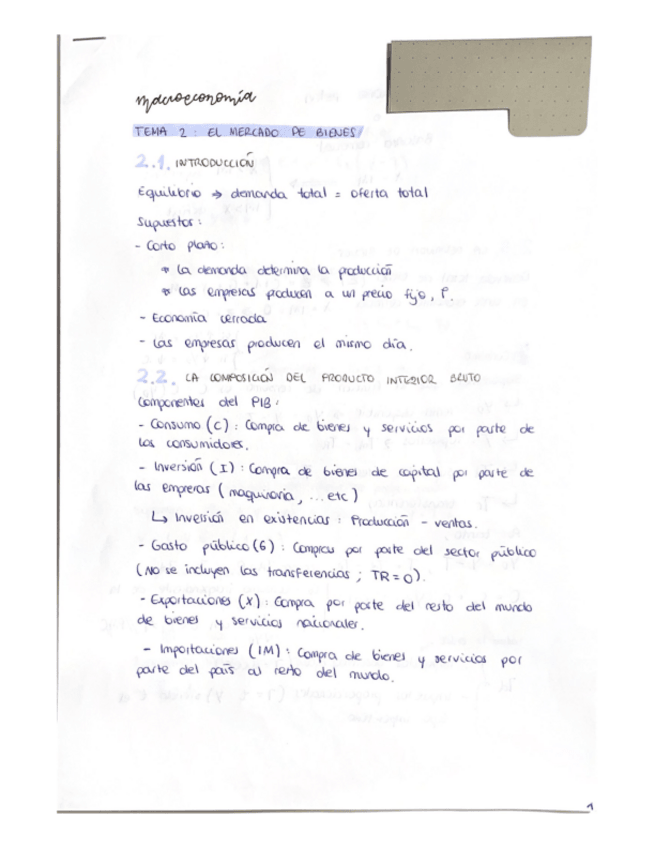 Macroeconomía
TEMA 2 : EL MERCADO DE BIENES
2.1. INTRODUCCIÓN
Equilibrio → demanda total = oferta total
Supuestos :
- Corto plazo :
* La demanda determina la producción
* Las empresas producen a un precio fijo, P.
- Economía cerrada
- Las empresas producen el mismo día.
2.2. LA COMPOSICIÓN DEL PRODUCTO INTERIOR BRUTO
Componentes del PIB :
- Consumo (C) : Compra de bienes y servicios por parte de
los consumidores.
- Inversión (I) : Compra de bienes de capital por parte de
las empresas (maquinaria, ... etc)
↳ Inversión en existencias : Producción - ventas.
- Gasto público (G) : Compras por parte del sector público
(NO se incluyen las transferencias ; TR = 0).
- Exportaciones (X) : Compra por parte del resto del mundo
de bienes y servicios nacionales.
- Importaciones (IM) : Compra de bienes y servicios por
parte del país al resto del mundo.
1